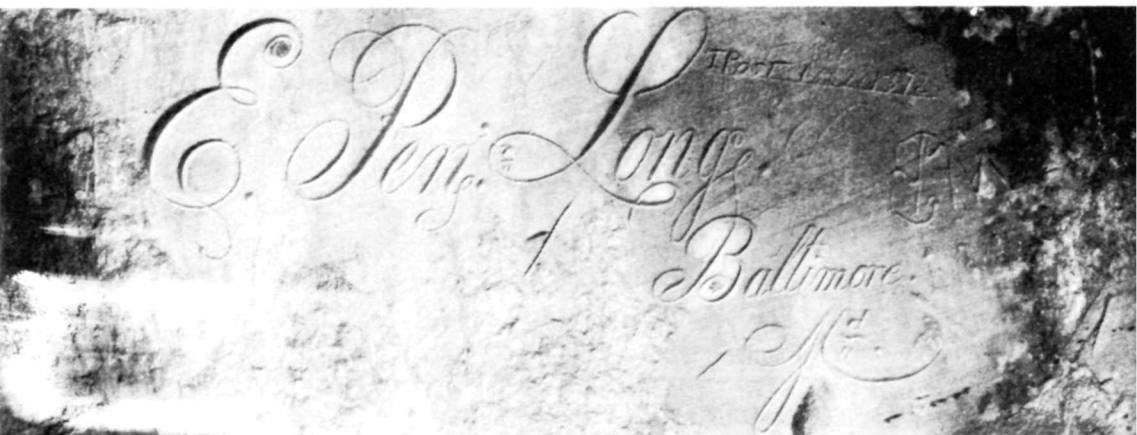 E. Pen Long.
Baltimore.
Md